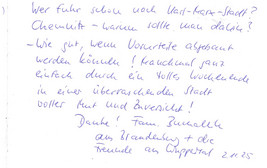 Wer fuhr schon nach Karl-Marx-Stadt?
Chemnitz - warum sollte man dahin?
- Wie gut, wenn Vorurteile abgebaut
werden können! Manchmal ganz
einfach durch ein volles Wochenende
in einer überraschenden Stadt
voller Mut und Zuversicht!
Danke! Fam.
aus Brandenburg + die
Freunde aus Wuppertal 2.11.25